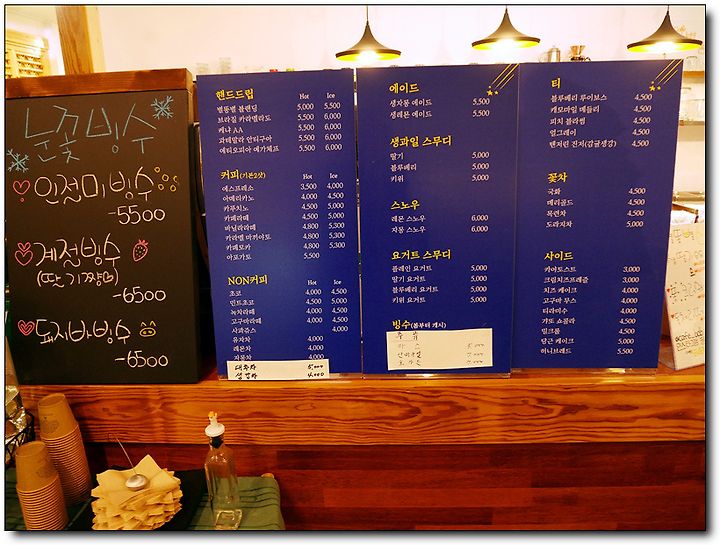 눈꽃빙수
인절미빙수
-5500
계절빙수
(딴기짱)
-6500
돼지바빙수
-6500
핸드드립 Hot Ice
별똥별 블렌딩 5,000 5,500
브라질 카라멜라도 5,500 6,000
케냐 AA 5,500 6,000
과테말라 안티구아 5,500 6,000
에티오피아 예가체프 5,500 6,000
커피(기본2샷) Hot Ice
에스프레소 3,500 4,000
아메리카노 4,000 4,500
카푸치노 4,500 5,000
카페라떼 4,500 5,000
바닐라라떼 4,800 5,300
카라멜 마끼아또 4,800 5,300
카페모카 4,800 5,300
아포가토 5,500
NON커피 Hot Ice
초코 4,000 4,500
민트초코 4,500 5,000
녹차라떼 4,000 4,500
고구마라떼 4,000 4,500
사과쥬스 4,000
유자차 4,000
레몬차 4,000
자몽차 4,000
대추차 5,000
생강차 4,000
에이드
생자몽 에이드 5,500
생레몬 에이드 5,500
생과일 스무디
딸기 5,000
블루베리 5,000
키위 5,000
스노우
레몬 스노우 6,000
자몽 스노우 6,000
요거트 스무디
플레인 요거트 5,000
딸기 요거트 5,000
블루베리 요거트 5,000
키위 요거트 5,000
빙수(봄부터 개시)
티
블루베리 루이보스 4,500
캐모마일 메들리 4,500
피치 블라썸 4,500
얼그레이 4,500
탠저린 진저(감귤생강) 4,500
꽃차
국화 4,500
메리골드 4,500
목련차 4,500
도라지차 5,000
사이드
카야토스트 3,000
크림치즈프레즐 3,500
치즈 케이크 4,000
고구마 무스 4,000
티라미수 4,000
갸또 쇼콜라 4,500
밀크롤 4,500
당근 케이크 5,000
허니브레드 5,500